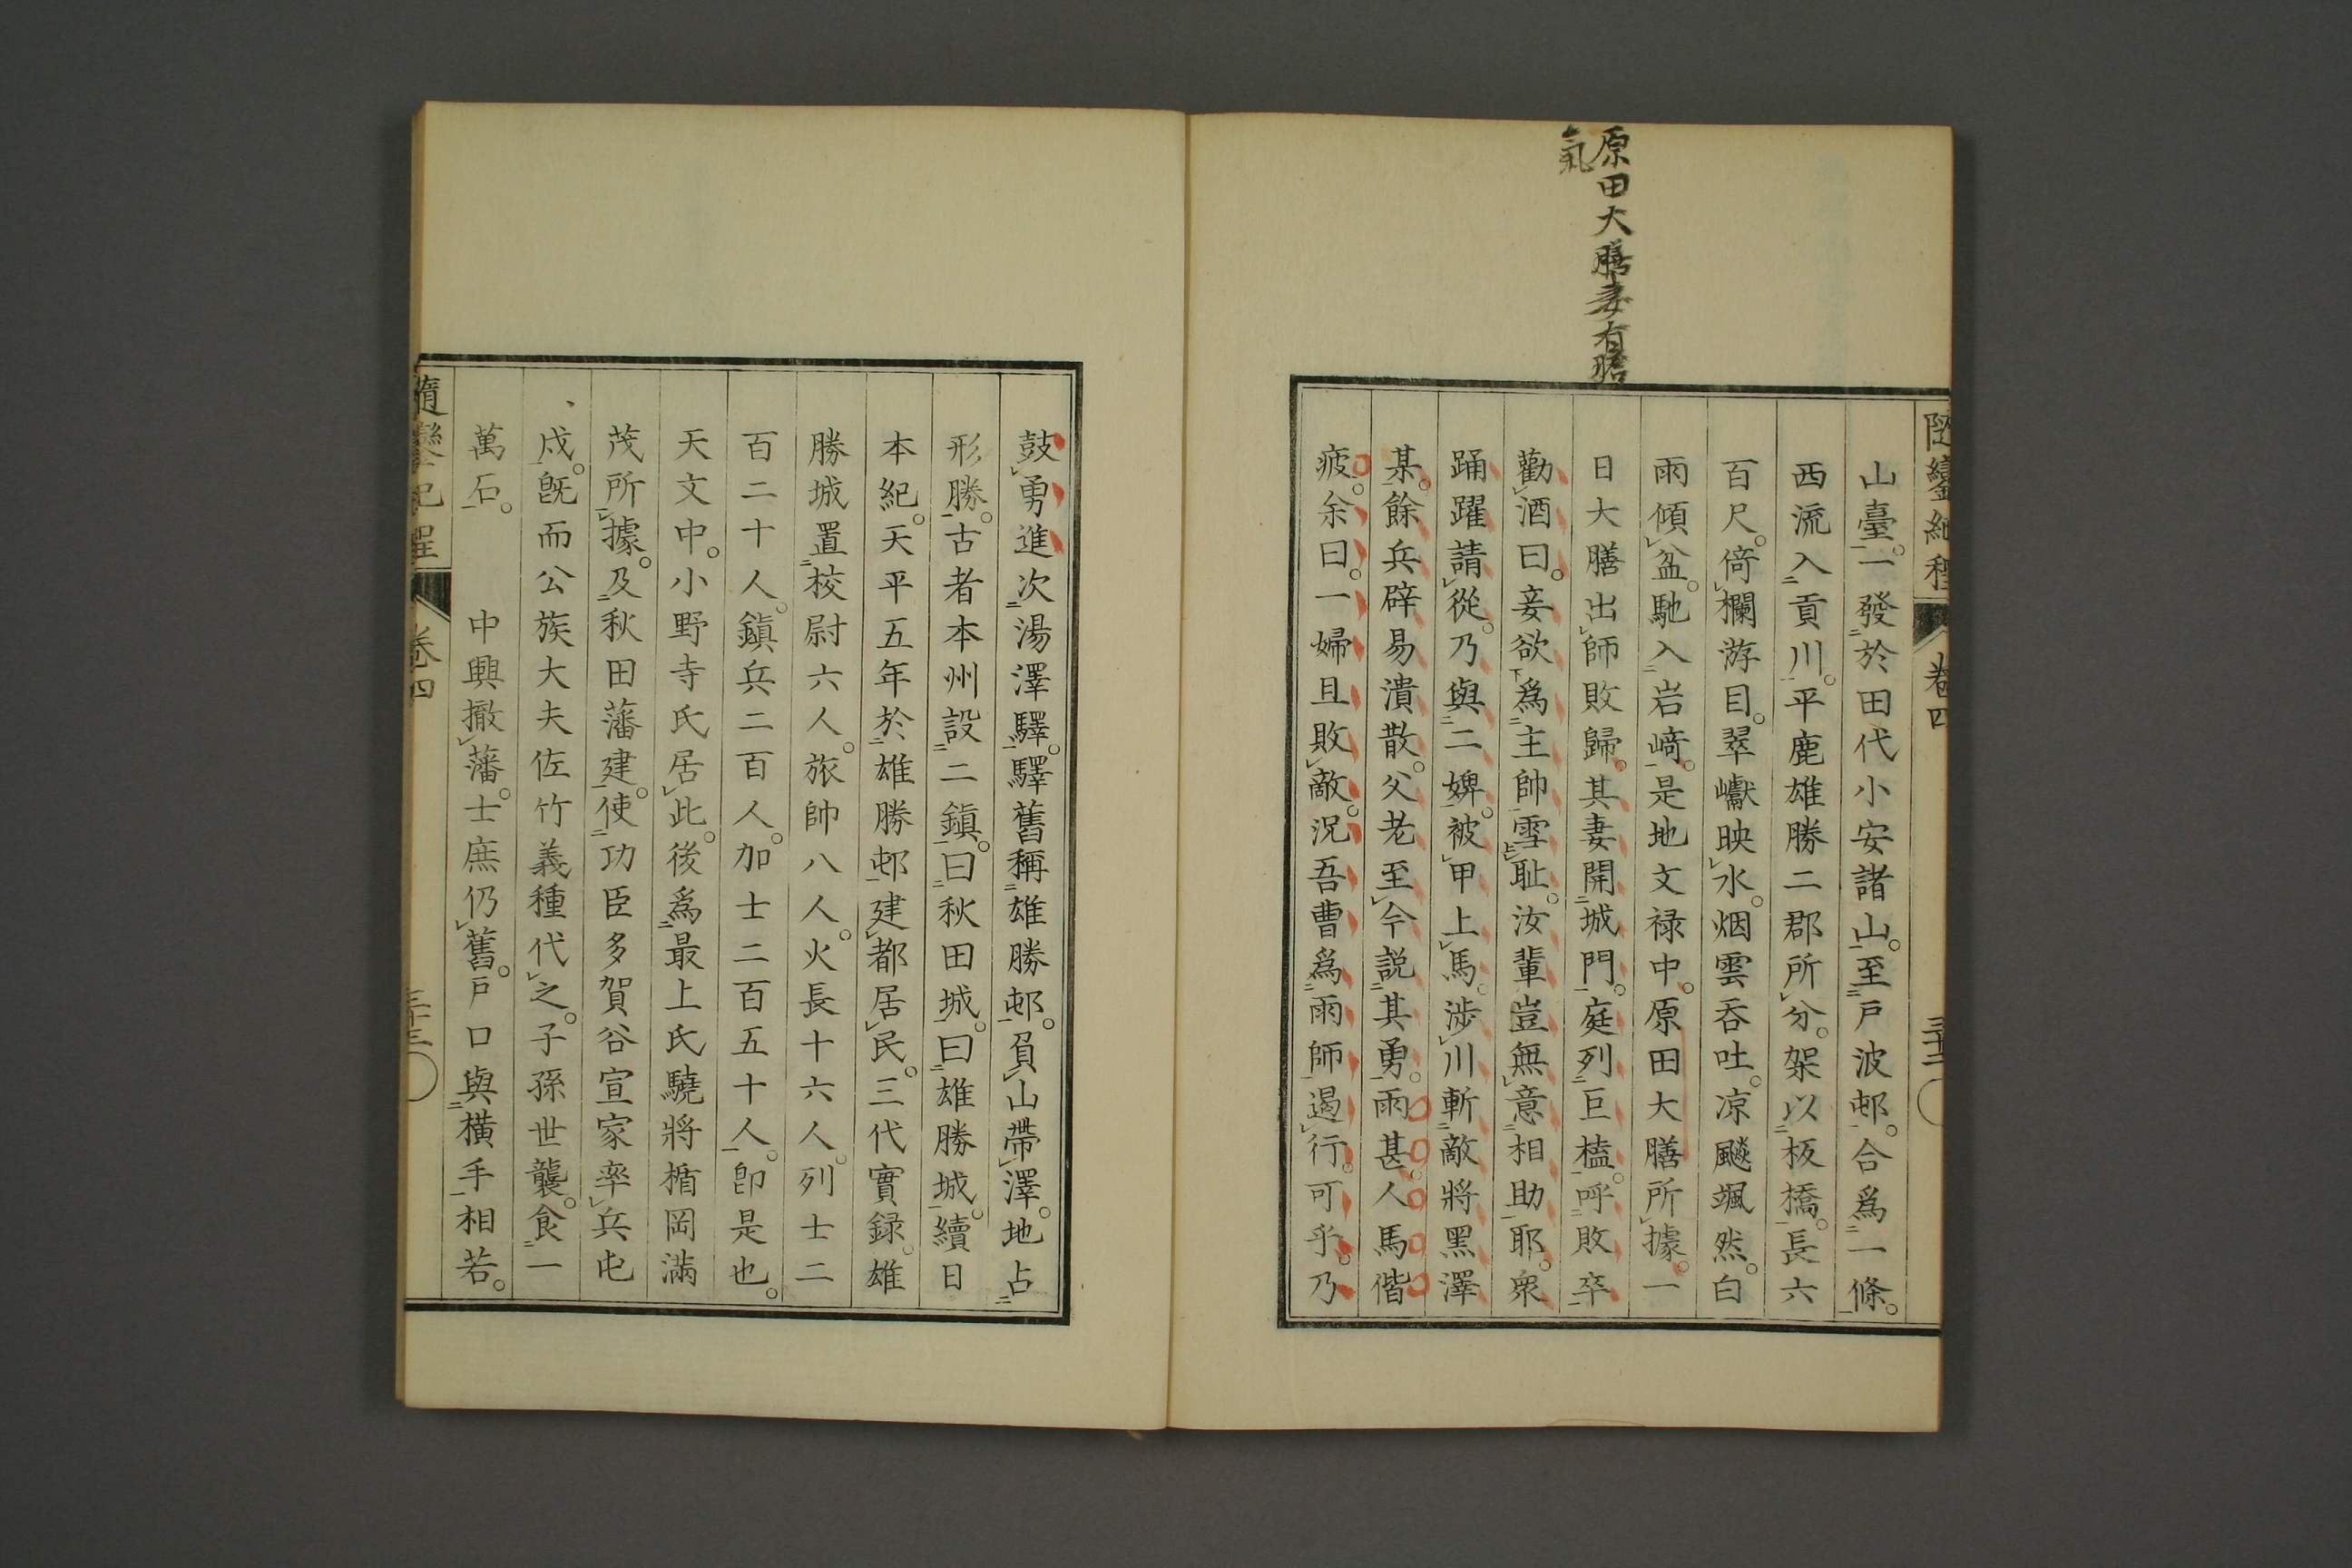 原田大膳妻有膽
氣
隨鑾紀程 卷四 三十二
山臺。一發於田代小安諸山。至戸波邨。合爲一條。
西流入貢川。平鹿雄勝二郡所分。架以板橋。長六
百尺。倚欄游目。翠巘映水。烟雲呑吐。凉飇颯然。白
雨傾盆。馳入岩﨑。是地文禄中。原田大膳所據。一
日大膳出師敗歸。其妻開城門。庭列巨榼。呼敗卒
勸酒曰。妾欲爲主帥雪耻。汝輩豈無意相助耶。衆
踊躍請從。乃與二婢。被甲上馬。渉川斬敵將黑澤
某。餘兵辟易潰散。父老至今説其勇。雨甚。人馬偕
疲。余曰。一婦且敗敵。況吾曹爲雨師遏行。可乎。乃
鼓勇進次湯澤驛。驛舊稱雄勝邨。負山帶澤。地占
形勝。古者本州設二鎭。曰秋田城。曰雄勝城。續日
本紀。天平五年於雄勝邨建都居民。三代實録。雄
勝城置校尉六人。旅帥八人。火長十六人。列士二
百二十人。鎭兵二百人。加士二百五十人。卽是也。
天文中。小野寺氏居此。後爲最上氏驍將楯岡滿
茂所據。及秋田藩建。使功臣多賀谷宣家率兵屯
戍。旣而公族大夫佐竹義種代之。子孫世襲。食一
萬石。 中興撤藩。士庶仍舊。戸口與横手相若。
隨鑾紀程 卷四 三十三